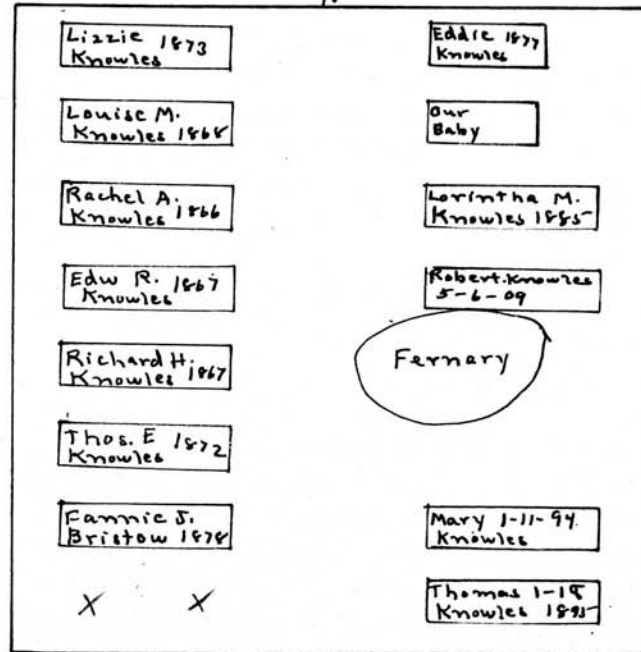 Lizzie 1873
Knowles
Louise M.
Knowles 1868
Rachel A.
Knowles 1866
Edw R. 1867
Knowles
Richard H.
Knowles 1867
Thos. E 1872
Knowles
Fannie J.
Bristow 1878
X X
Eddie 1877
Knowles
Our
Baby
Lorintha M.
Knowles 1885
Robert. Knowles
5-6-09
Fernary
Mary 1-11-94
Knowles
Thomas 1-18
Knowles 1895